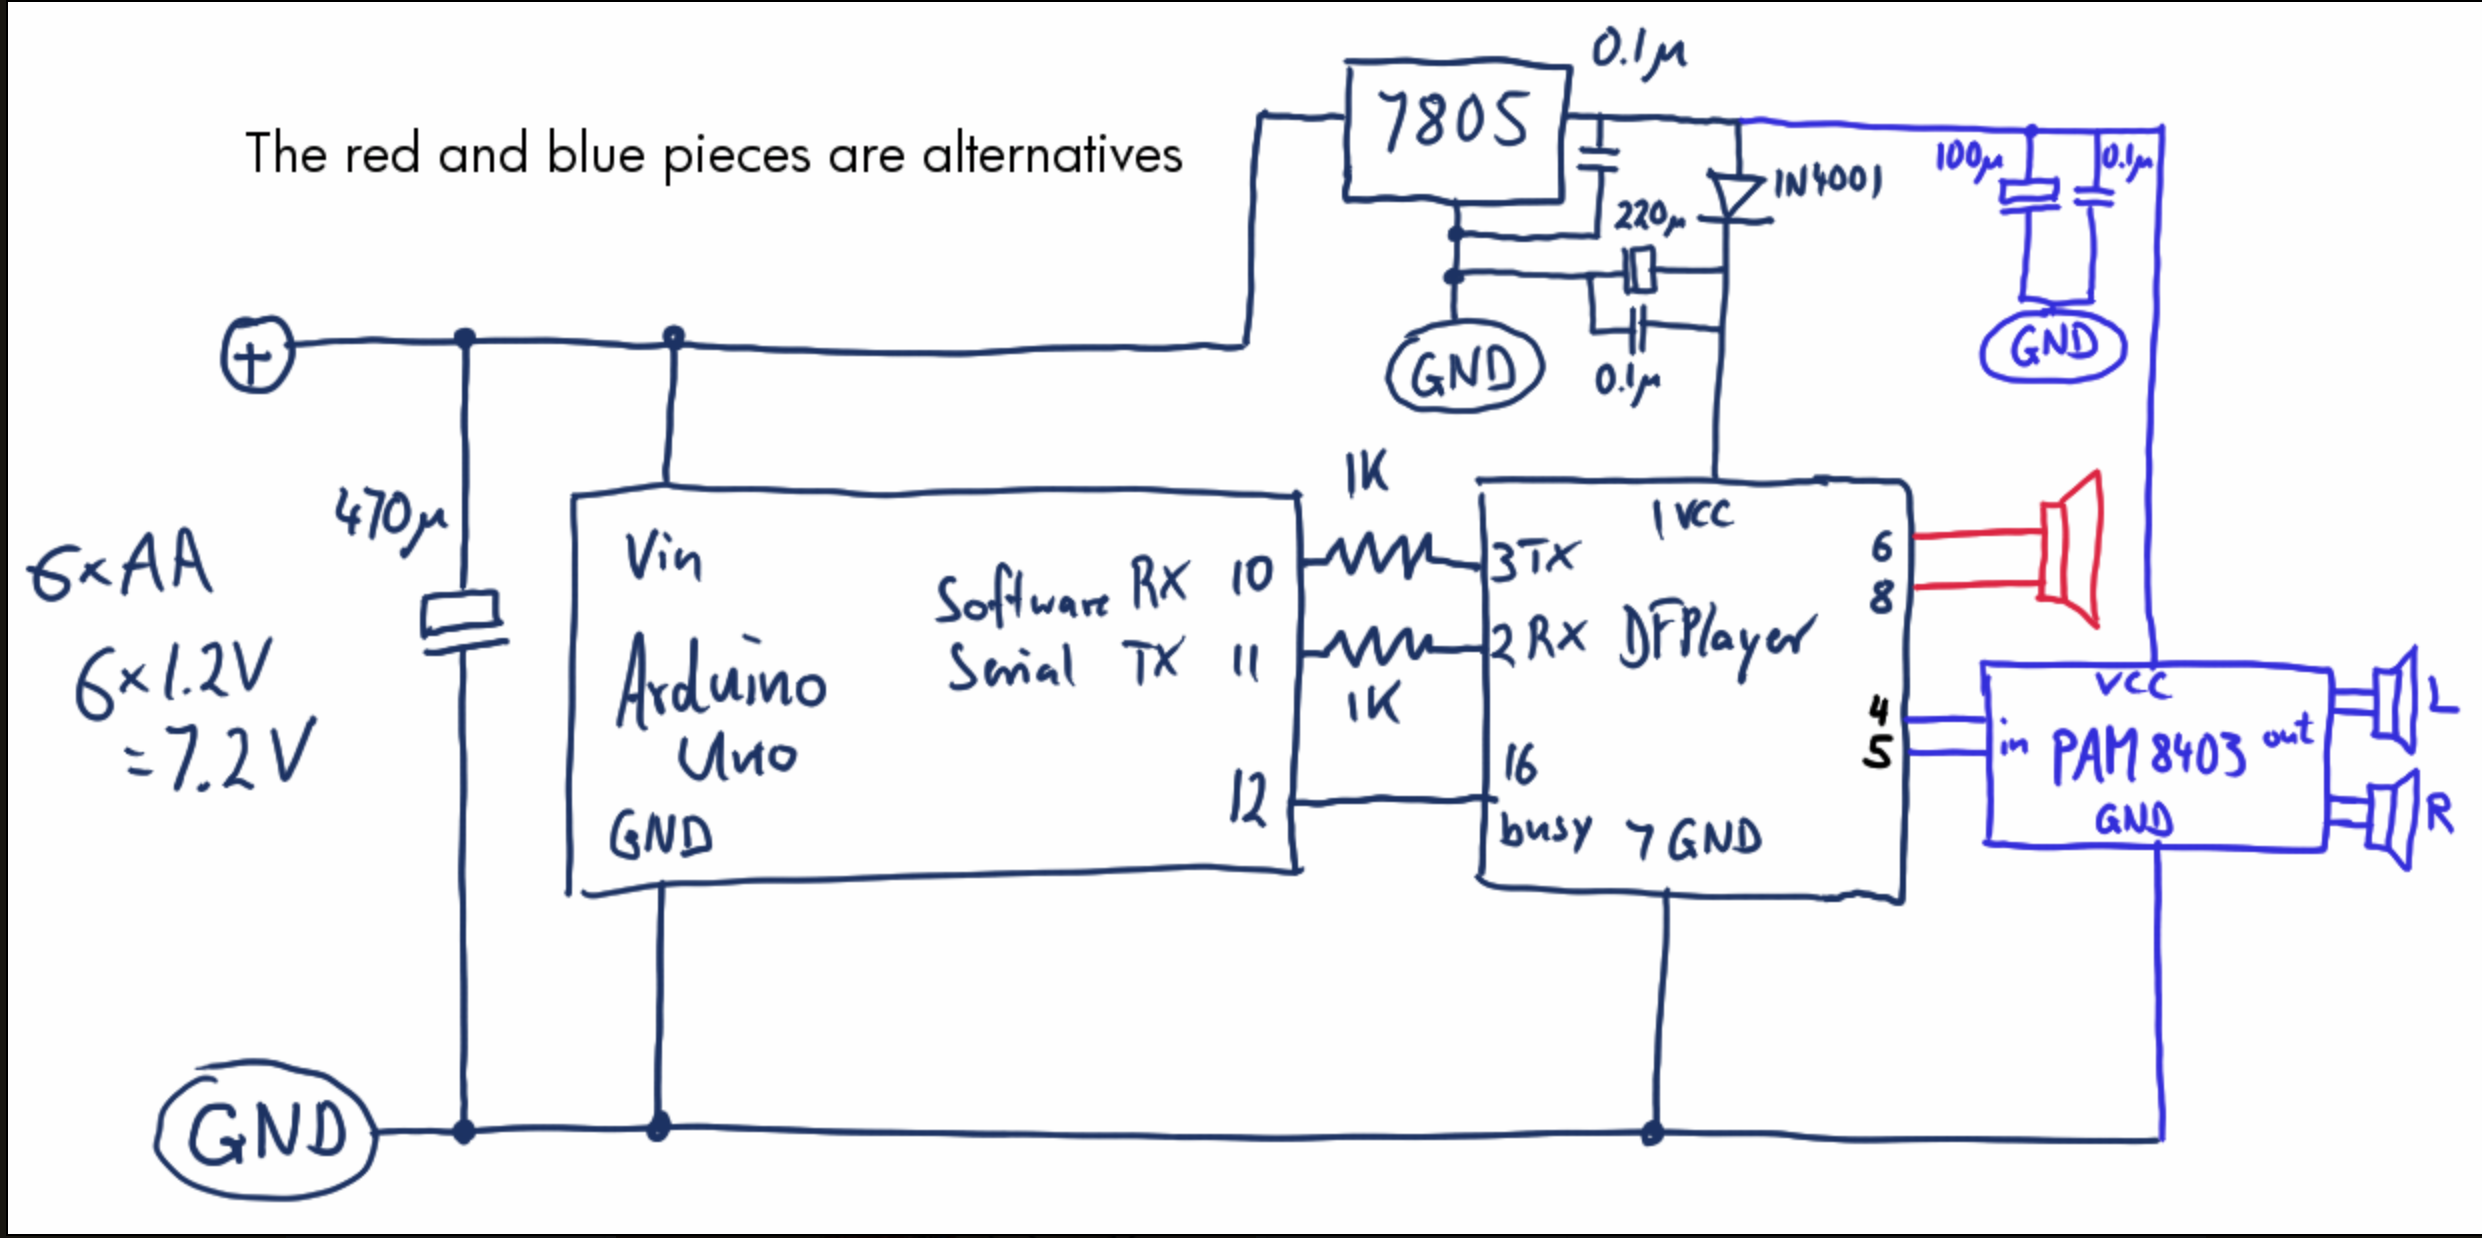 The red and blue pieces are alternatives
7805
0.1μ
1N4001
220μ
0.1μ
GND
100μ
0.1μ
GND
+
470μ
6×AA
6×1.2V
=7.2V
Vin
Arduino
Uno
GND
Software RX 10
Serial TX 11
12
1K
1K
1 VCC
3 TX
2 RX DFPlayer
16
busy 7 GND
6
8
4
5
VCC
in PAM8403 out
GND
L
R
GND